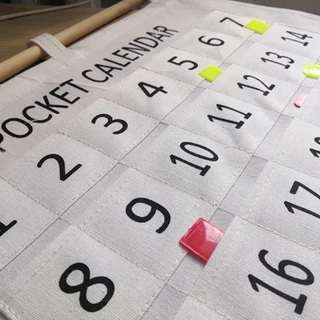 POCKET CALENDAR
1 2 3 4 5 6 7
8 9 10 11 12 13 14
16 17